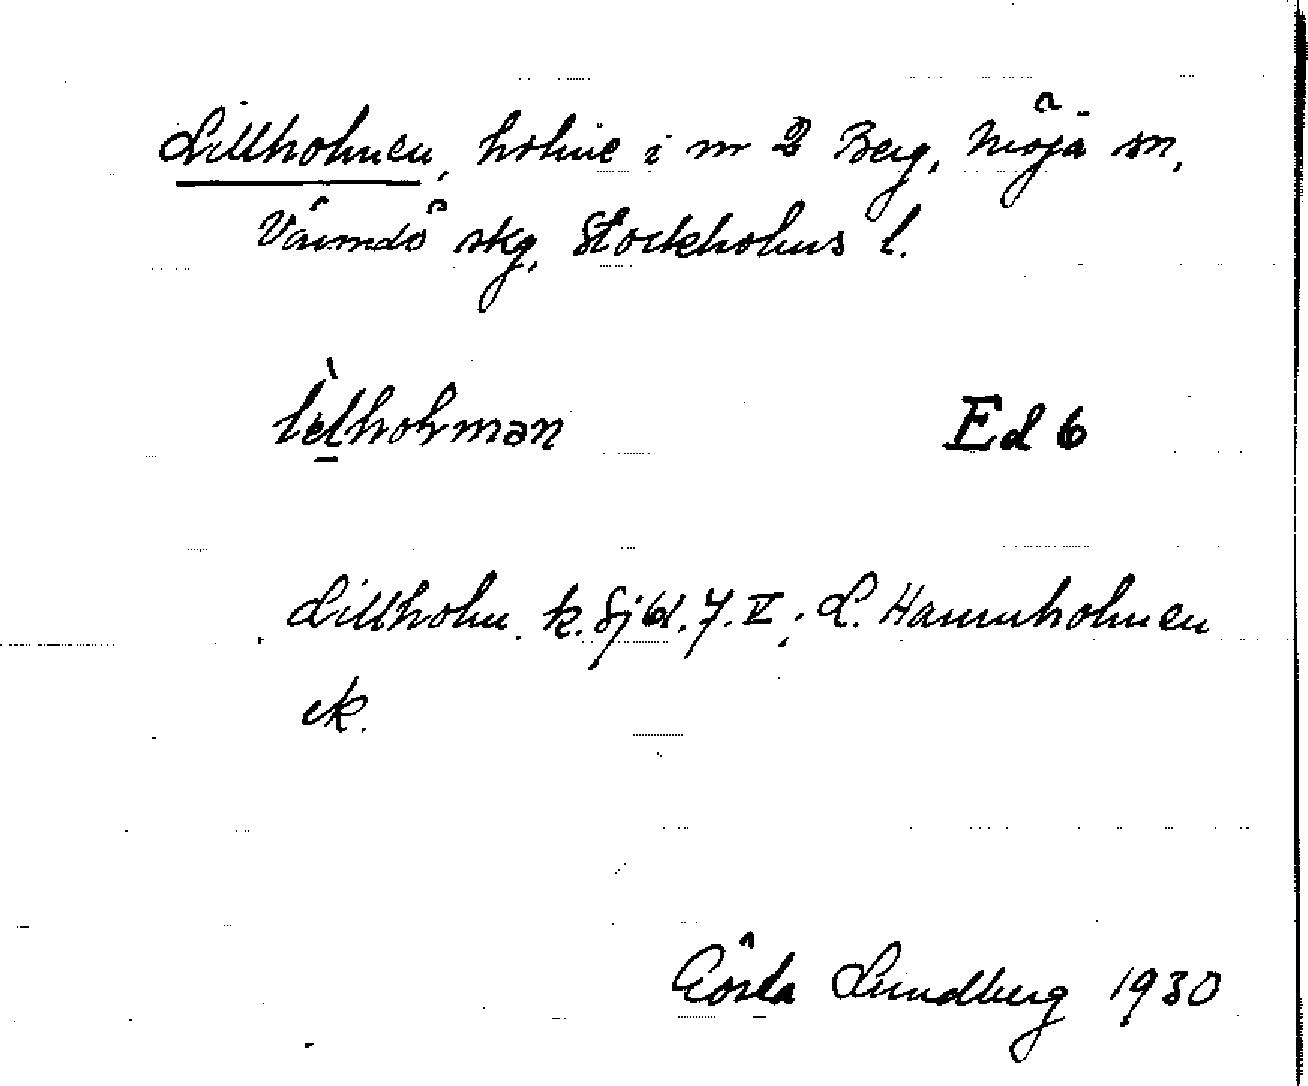 Lillholmen, holme i nr 2 Berg, Möja sn,
Värmdö skg, Stockholms l.
lìlholmən Ed 6
Lillholm. k. Sjöd. 7. V; L. Hamnholmen
ek.
Gösta Lundberg 1930